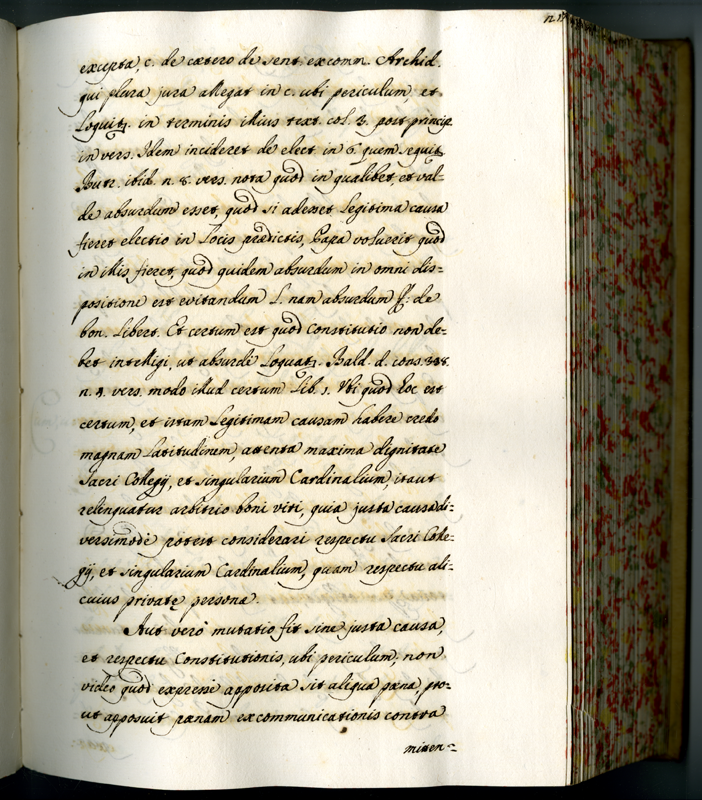 excepta, c. de cætero de sent. excomm. Archid.
qui plura jura allegat in c. ubi periculum, et
loquit. in terminis illius text. col. 3. post princip.
in vers. Idem incideret de elect in 6. quem sequit.
Butr. ibid. n. 8. vers. nota quod in qualibet, et val-
de absurdum esset, quod si adesset legitima causa
fieret electio in locis prædictis, Papa voluerit quod
in illis fieret, quod quidem absurdum in omni dis=
positione est evitandum l. nam absurdum ff. de
bon. libert. Et certum est quod Constitutio non de-
bet intelligi, ut absurdè loquat. Bald. d. cons. 338.
n. 4. vers. modo illud certum lib. 1. Ubi quod hoc est
certum, et istam legitimam causam habere credo
magnam latitudinem, attenta maxima dignitate
Sacri Collegij, et singularium Cardinalium, itaut
relinquatur arbitrio boni viri, quia justa causa di=
versimodè potest considerari respectu Sacri Colle-
gij, et singularium Cardinalium, quam respectu ali=
cuius privatę persona.
Aut verò mutatio fit sine justa causa,
et respectu Constitutionis, ubi periculum, non
video quod expresse apposita sit aliqua pæna, pro-
ut apposuit pænam excommunicationis contra
mitten=